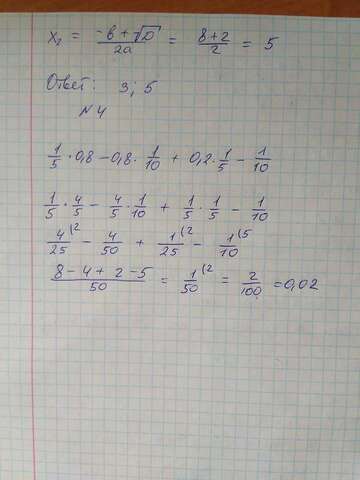 x₂ = (-b + √D)/2a = (8+2)/2 = 5
Ответ: 3; 5
N4
1/5 · 0,8 – 0,8 · 1/10 + 0,2 · 1/5 – 1/10
1/5 · 4/5 – 4/5 · 1/10 + 1/5 · 1/5 – 1/10
4/25 (2 – 4/50 + 1/25 (2 – 1/10 (5
(8 – 4 + 2 – 5)/50 = 1/50 (2 = 2/100 = 0,02